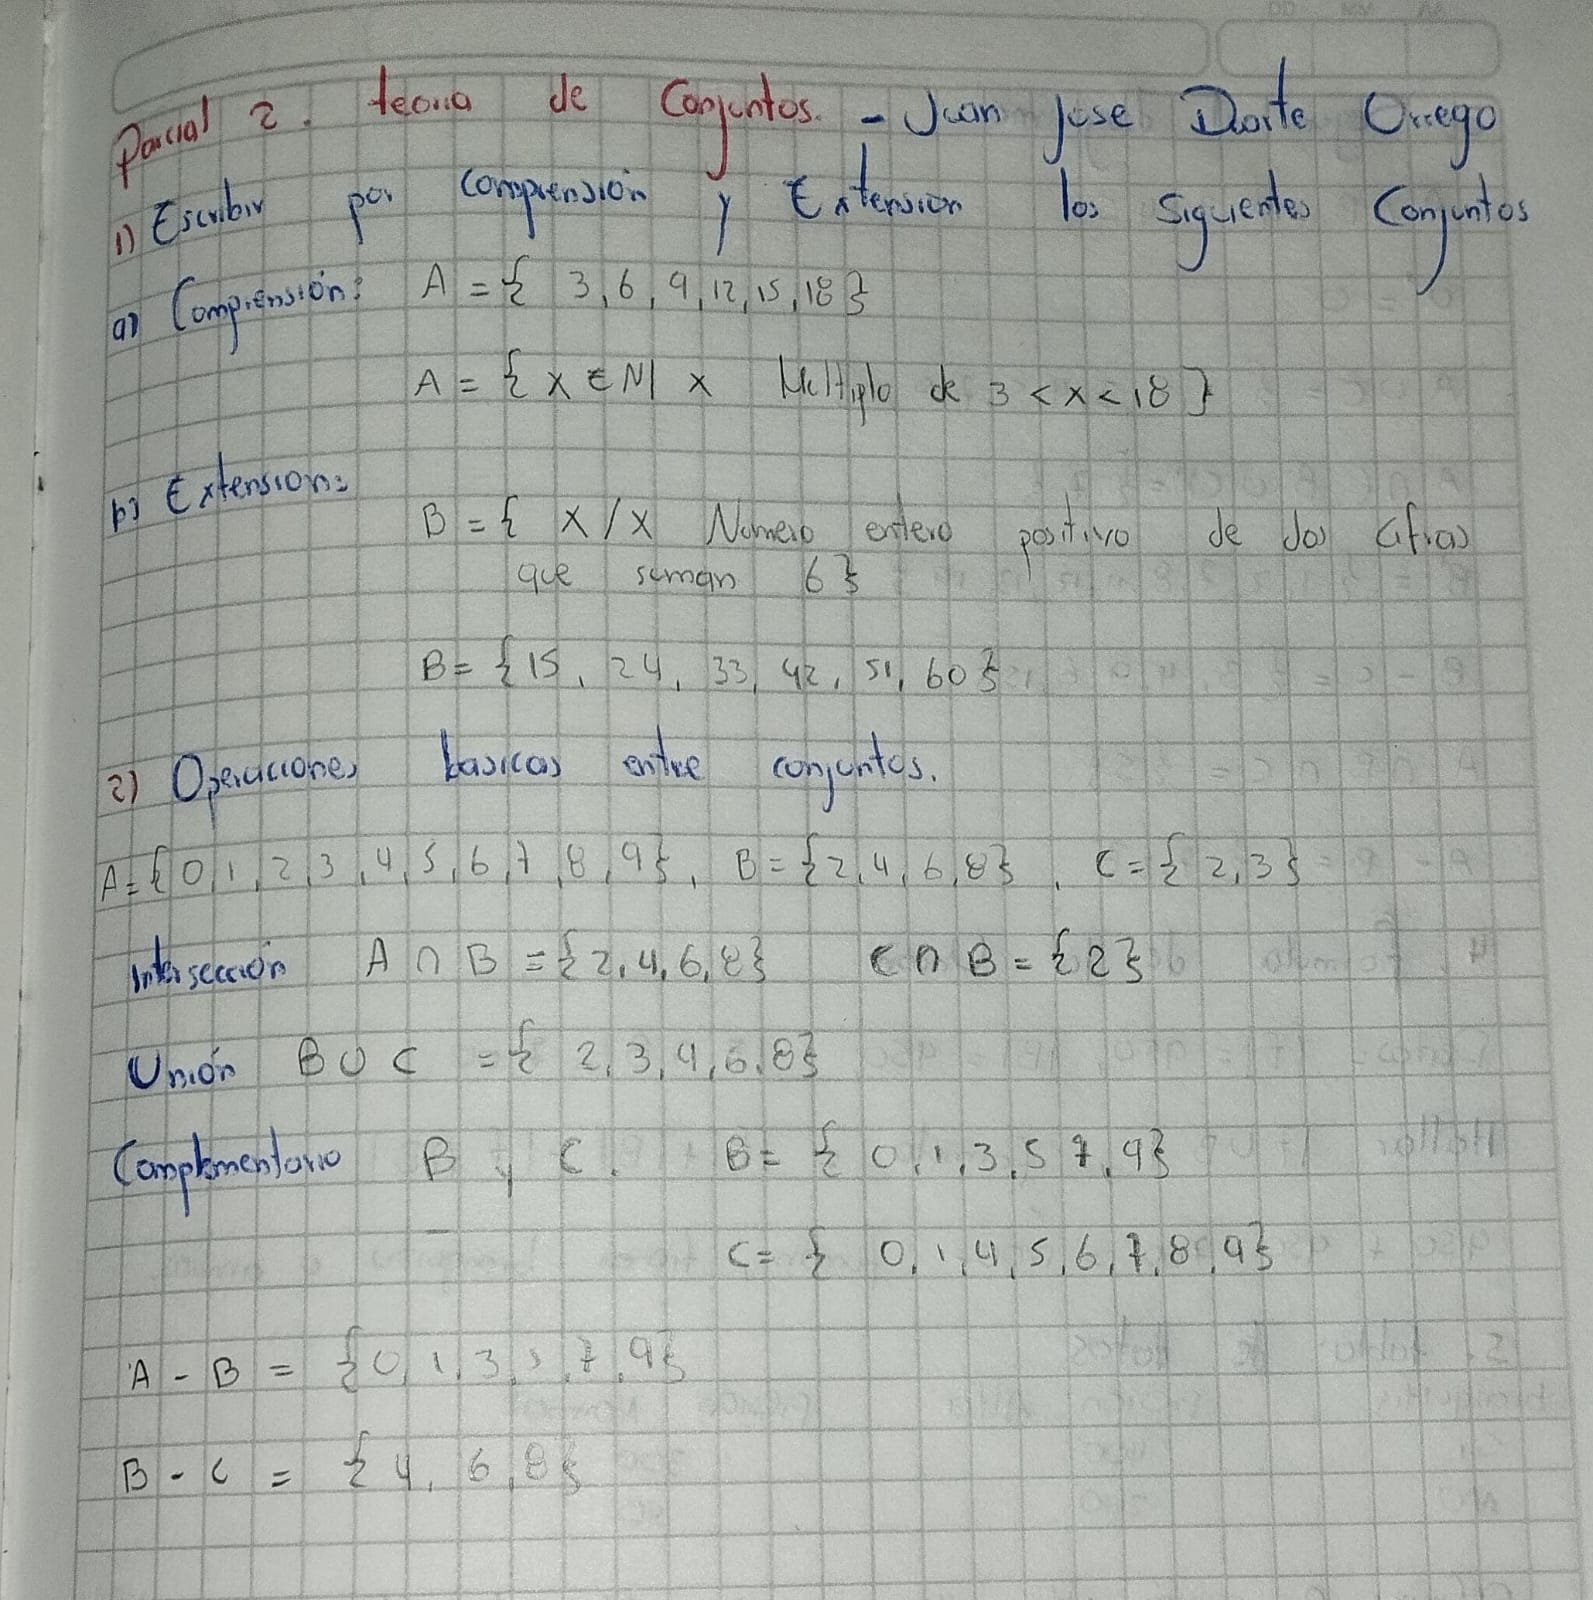 Parcial 2. teoria de Conjuntos. - Juan Jose Duarte Orrego
1) Escribir por comprensión y Extension los siguientes Conjuntos
a) Comprensión: A = { 3, 6, 9, 12, 15, 18 }
A = { x ∈ N | x Multiplo de 3 < x < 18 }
b) Extension:
B = { x / x Numero entero positivo de dos cifras
que suman 6 }
B = { 15, 24, 33, 42, 51, 60 }
2) Operaciones basicas entre conjuntos.
A = { 0, 1, 2, 3, 4, 5, 6, 7, 8, 9 }, B = { 2, 4, 6, 8 }, C = { 2, 3 }
Intersección A ∩ B = { 2, 4, 6, 8 } C ∩ B = { 2 }
Unión B U C = { 2, 3, 4, 6, 8 }
Complementario B y C. B = { 0, 1, 3, 5 7, 9 }
C = { 0, 1, 4, 5, 6, 7, 8, 9 }
A - B = { 0, 1, 3, 5, 7, 9 }
B - C = { 4, 6, 8 }